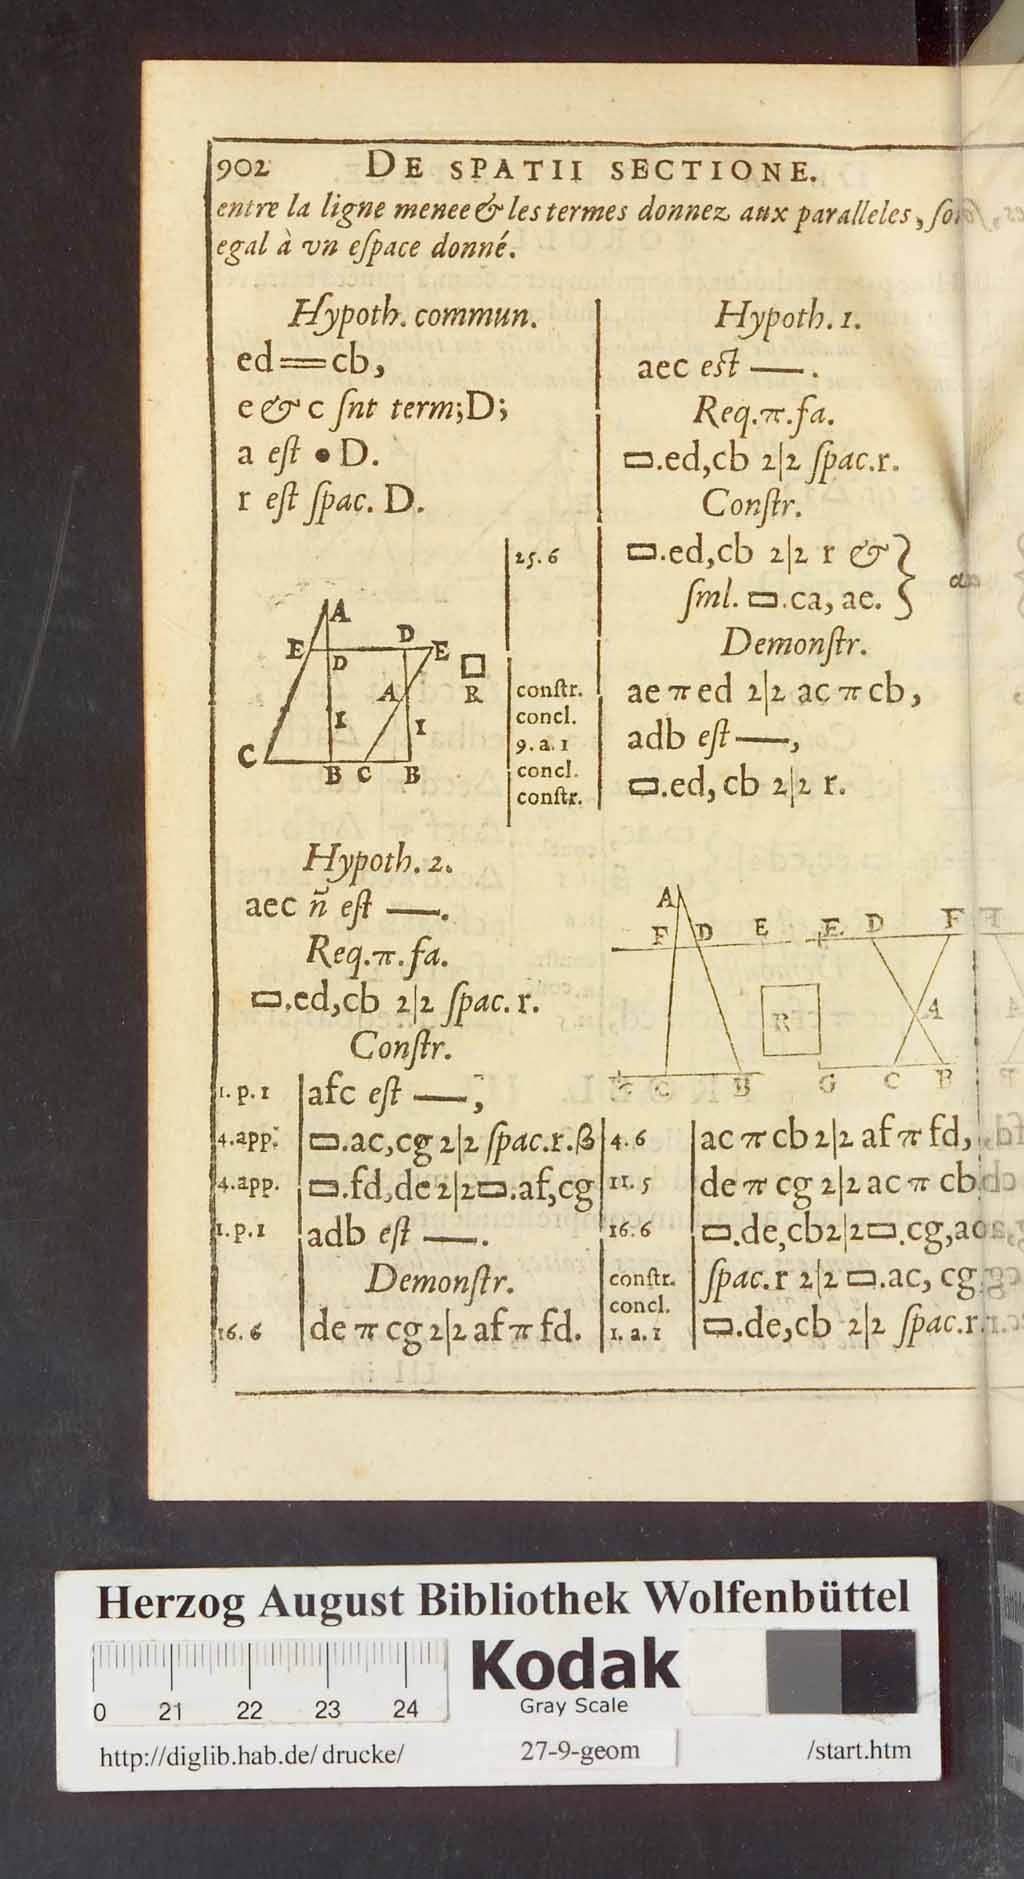 902 DE SPATII SECTIONE.
entre la ligne menee & les termes donnez aux paralleles, soi
egal à vn espace donné.
Hypoth. commun.
ed==cb,
e & c snt term; D;
a est • D.
r est spac. D.
A
E D E
D
A R
I I
C B C B
Hypoth. 1.
aec est —.
Req. π. fa.
▭.ed,cb 2|2 spac.r.
Constr.
25.6 ▭.ed,cb 2|2 r &
sml. ▭.ca, ae.
Demonstr.
constr. ae π ed 2|2 ac π cb,
concl.
9. a. 1 adb est —,
concl.
constr. ▭.ed, cb 2|2 r.
Hypoth. 2.
aec n̄ est —.
Req. π. fa.
▭.ed,cb 2|2 spac. r.
Constr.
1. p. 1 afc est —,
4. app. ▭.ac,cg 2|2 spac.r.β
4. app. ▭.fd,de 2|2 ▭.af,cg
1. p. 1 adb est —.
Demonstr.
16. 6 de π cg 2|2 af π fd.
A
F D E E D F
R A
G C B G C B
4. 6 ac π cb 2|2 af π fd,
11. 5 de π cg 2|2 ac π cb
16. 6 ▭.de,cb 2|2 ▭.cg,ac
constr. spac.r 2|2 ▭.ac, cg
concl.
1. a. 1 ▭.de,cb 2|2 spac.r.
Herzog August Bibliothek Wolfenbüttel
0 21 22 23 24
Kodak
Gray Scale
http://diglib.hab.de/drucke/ 27-9-geom /start.htm